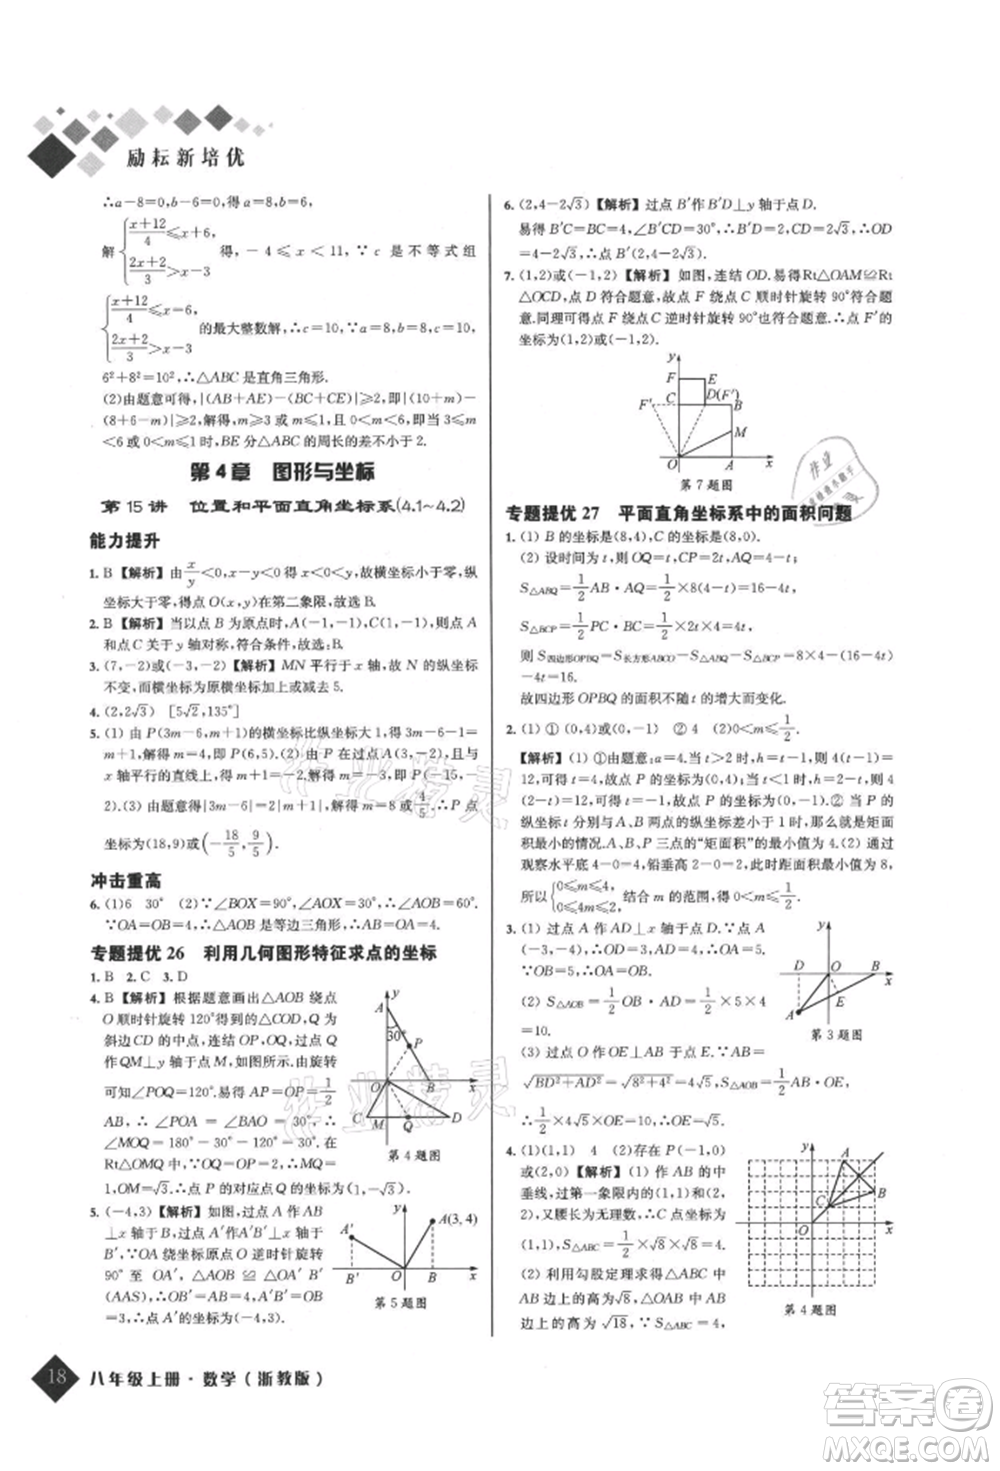 励耘新培优
∴a-8=0,b-6=0,得 a=8,b=6.
解{(x+12)/4≤x+6, (2x+2)/3>x-3 得,-4≤x<11,∵c 是不等式组
{(x+12)/4≤x+6, (2x+2)/3>x-3 的最大整数解,∴c=10,∵
6²+8²=10²,∴△ABC是直角三角形.
(2)由题意可得,|(AB+AE)-(BC+CE)|≥2,即|(10+m)-
(8+6-m)|≥2,解得,m≥3 或 m≤1,又∵0<m<6,即当 3≤m
<6 或 0<m≤1 时,BE 分△ABC 的周长的差不小于 2.
第4章 图形与坐标
第15讲 位置和平面直角坐标系(4.1~4.2)
能力提升
1. B 【解析】由x/y<0,则 x>0,y<0 或 x<0,y>0,故横坐标小于零,纵
坐标大于零,所以 Q(x,y)在第二象限,故选B.
2. B 【解析】当以点 B 为原点时,A(-1,-1),C(1,-1),则点 A
和点 C 关于 y 轴对称,符合条件,故选:B
3. (7,-2)或(-3,-2) 【解析】MN 平行于 x 轴,故 N 的纵坐标
不变,而横坐标为原横坐标加上或减去 5.
4. (2,2√3) [5√2,135°]
5. (1) 由 P(3m-6,m+1)的横坐标比纵坐标大 1,得 3m-6-
(m+1)=1,解得 m=4,即 P(6,5).(2)由点 P(3m-6,m+1)在
x 轴上,得
2).(3) 由题意得|3m-6|=2|m+1|,解得 m=8 或4/5.∴P点
坐标为(18,9)或(-18/5,9/5).
冲击重高
6. (1)6 30° (2)∵∠BOX=90°,∠AOX=30°,∴∠AOB=60°.
∵OA=OB=6,∴△AOB 是等边三角形,∴AB=OA=6.
专题提优 26 利用几何图形特征求点的坐标
1. B 2. C 3. D
4. B 【解析】根据题意画出△AOB 绕点
O 顺时针旋转 120°得到的△COD,Q 为
斜边 CD 的中点,连结 OP,OQ,过点 Q
作 QM⊥y 轴于点 M,如图所示.由旋转
可知∠POQ=120°.易得 AP=OP=1/2
AB,∴∠POA=∠BAO=30°,∴
∠MOQ=180°-30°-120°=30°.在
Rt△OMQ 中,∵OQ=OP=2,∴MQ=
1,OM=√3,则点 P 的对应点 Q 的坐标为(1,-√3).
A
y
30°
P
O
B
x
C
M
Q
D
第4题图
5. (-4,3) 【解析】如图,过点 A 作 AB⊥
x 轴于 B,过点 A′作 A′B′⊥x 轴于 B′.
∵OA 绕坐标原点 O 逆时针旋转
90°至 OA′,∴△A′OB′≌△OAB
(AAS),∴OB′=AB=4,A′B′=OB
=3,∴点 A′的坐标为(-4,3).
y
A(3,4)
A′
B′
O
B
x
第5题图
6. (2,4-2√3) 【解析】过点 B′作 B′D⊥y 轴于点 D.
易得 B′C=BC=4,∠B′CD=30°,∴B′D=2,CD=2√3,∴OD
=4-2√3,∴B′(2,4-2√3).
7. (1,2)或(-1,2) 【解析】如图,连结 OD.易得Rt△OAM≌Rt
△OCD,故点 D 符合题意,故点 F 绕点 C 顺时针旋转 90°符合题
意.同理可得点 F 绕点 C 逆时针旋转 90°也符合题意.∴点 F′的
坐标为(1,2)或(-1,2).
y
F
E
F′
C
D(F′)
B
M
O
A
x
第7题图
专题提优 27 平面直角坐标系中的面积问题
1. (1) B 的坐标是(8,4),C 的坐标是(8,0).
(2) 设时间为 t,则 OQ=t,CP=2t,AP=8-2t,
S△ABQ=1/2AB·AQ=1/2×8(4-t)=16-4t,
S△BCP=1/2PC·BC=1/2×2t×4=4t,
则 S四边形OPBQ=S长方形OABC-S△ABQ-S△BCP=8×4-(16-4t)
-4t=16.
故四边形 OPBQ 的面积不随 t 的增大而变化.
2. (1) ① (0,4)或(0,-1) ② 4 (2)0<m≤1/2
【解析】(1) ①由题意:a=4.当 t>2 时,h=t-1,则 4(t-1)=
12,可得 t=4,故点 P 的坐标为(0,4);当 t<1 时,h=2-t,则 4
(2-t)=12,可得 t=-1,故点 P 的坐标为(0,-1).② 当 P 的
纵坐标 t 分别与 A、B 两点的纵坐标相等时,即为求出矩面
积最小的情况.如图,A、B、P 三点的“矩面积”的最小值为 4.(2) 通过
观察水平底 4-0=4,铅垂高=2,此时距面积的最小值为 8,
所以{0≤m≤4, 0≤2m≤1, 可求得 m 的范围,得 0<m≤1/2.
3. (1) 如图,过点 A 作 AD⊥x 轴于点 D.∵点 A
(-3,-4),∴OD=3,AD=4,∴OA=5.∵OA
=OB,∴OB=5.
(2) S△AOB=1/2OB×AD=1/2×5×4
=10.
(3) 过点 O 作 OE⊥AB 于点 E.∵AB=
√(BD²+AD²)=√(8²+4²)=4√5,S△AOB=1/2AB×OE=10,
∴1/2×4√5×OE=10,∴OE=√5.
D
O
B
x
E
A
第3题图
4. (1)(1,1) 4 (2)存在点 P(-1,0)
或(2,0) 【解析】(1)如图,作 AB 的中
垂线,过第一象限(1,1)和(2,
2),要使腰长为无理数,点 C 坐标为
(1,1),S△ABC=1/2×√8×√8=4.
(2) 利用勾股定理求得 AB=√8,AB
上的高为√18,∴S△ABC
y
A
B
C
O
x
第4题图
18
八年级上册·数学(浙教版)
作业精灵
答案圈
MXQE.COM